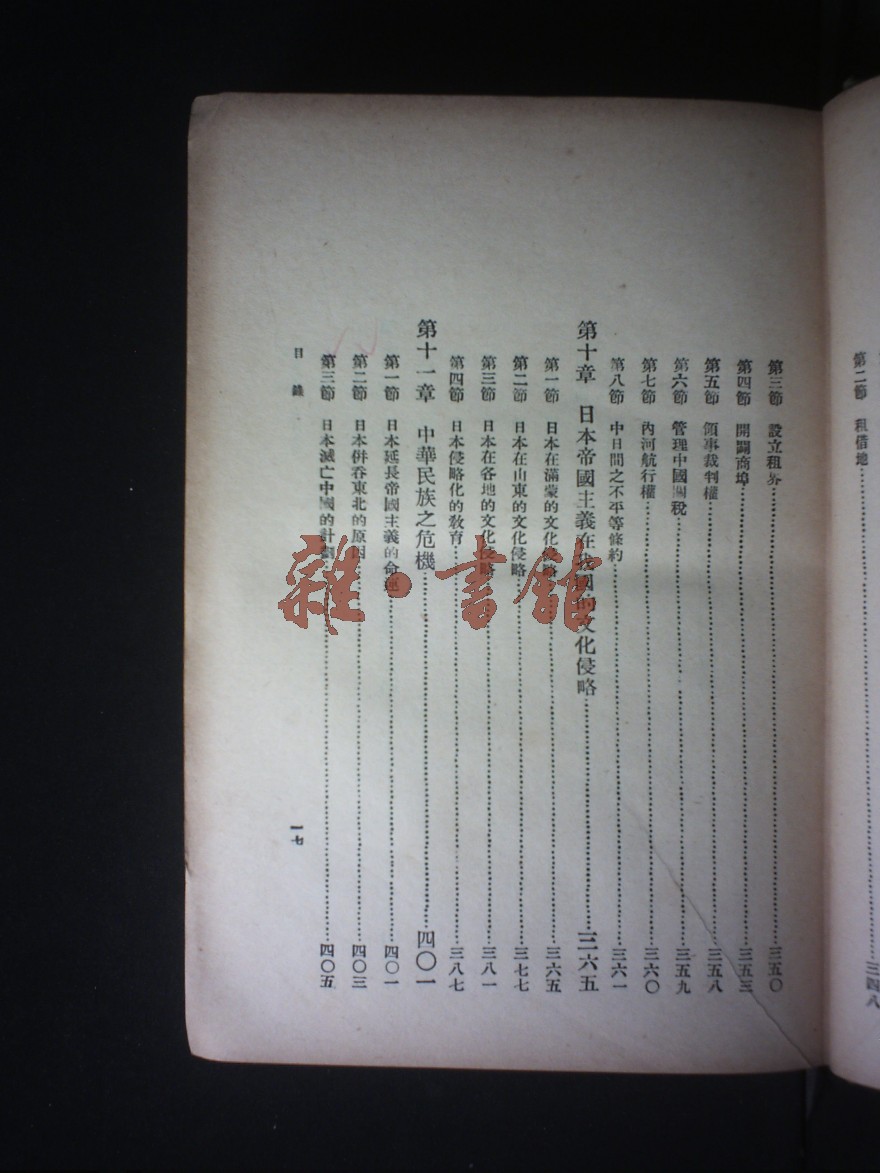 第二節 租借地……三四八
第三節 設立租界……三五〇
第四節 開闢商埠……三五三
第五節 領事裁判權……三五八
第六節 管理中國關稅……三五九
第七節 內河航行權……三六〇
第八節 中日間之不平等條約……三六一
第十章 日本帝國主義在我國的文化侵略……三六五
第一節 日本在滿蒙的文化侵略……三六五
第二節 日本在山東的文化侵略……三七七
第三節 日本在各地的文化侵略……三八一
第四節 日本侵略化的教育……三八七
第十一章 中華民族之危機……四〇一
第一節 日本延長帝國主義的命運……四〇一
第二節 日本併吞東北的原因……四〇三
第三節 日本滅亡中國的計劃……四〇五
目錄
一七
雜·書館